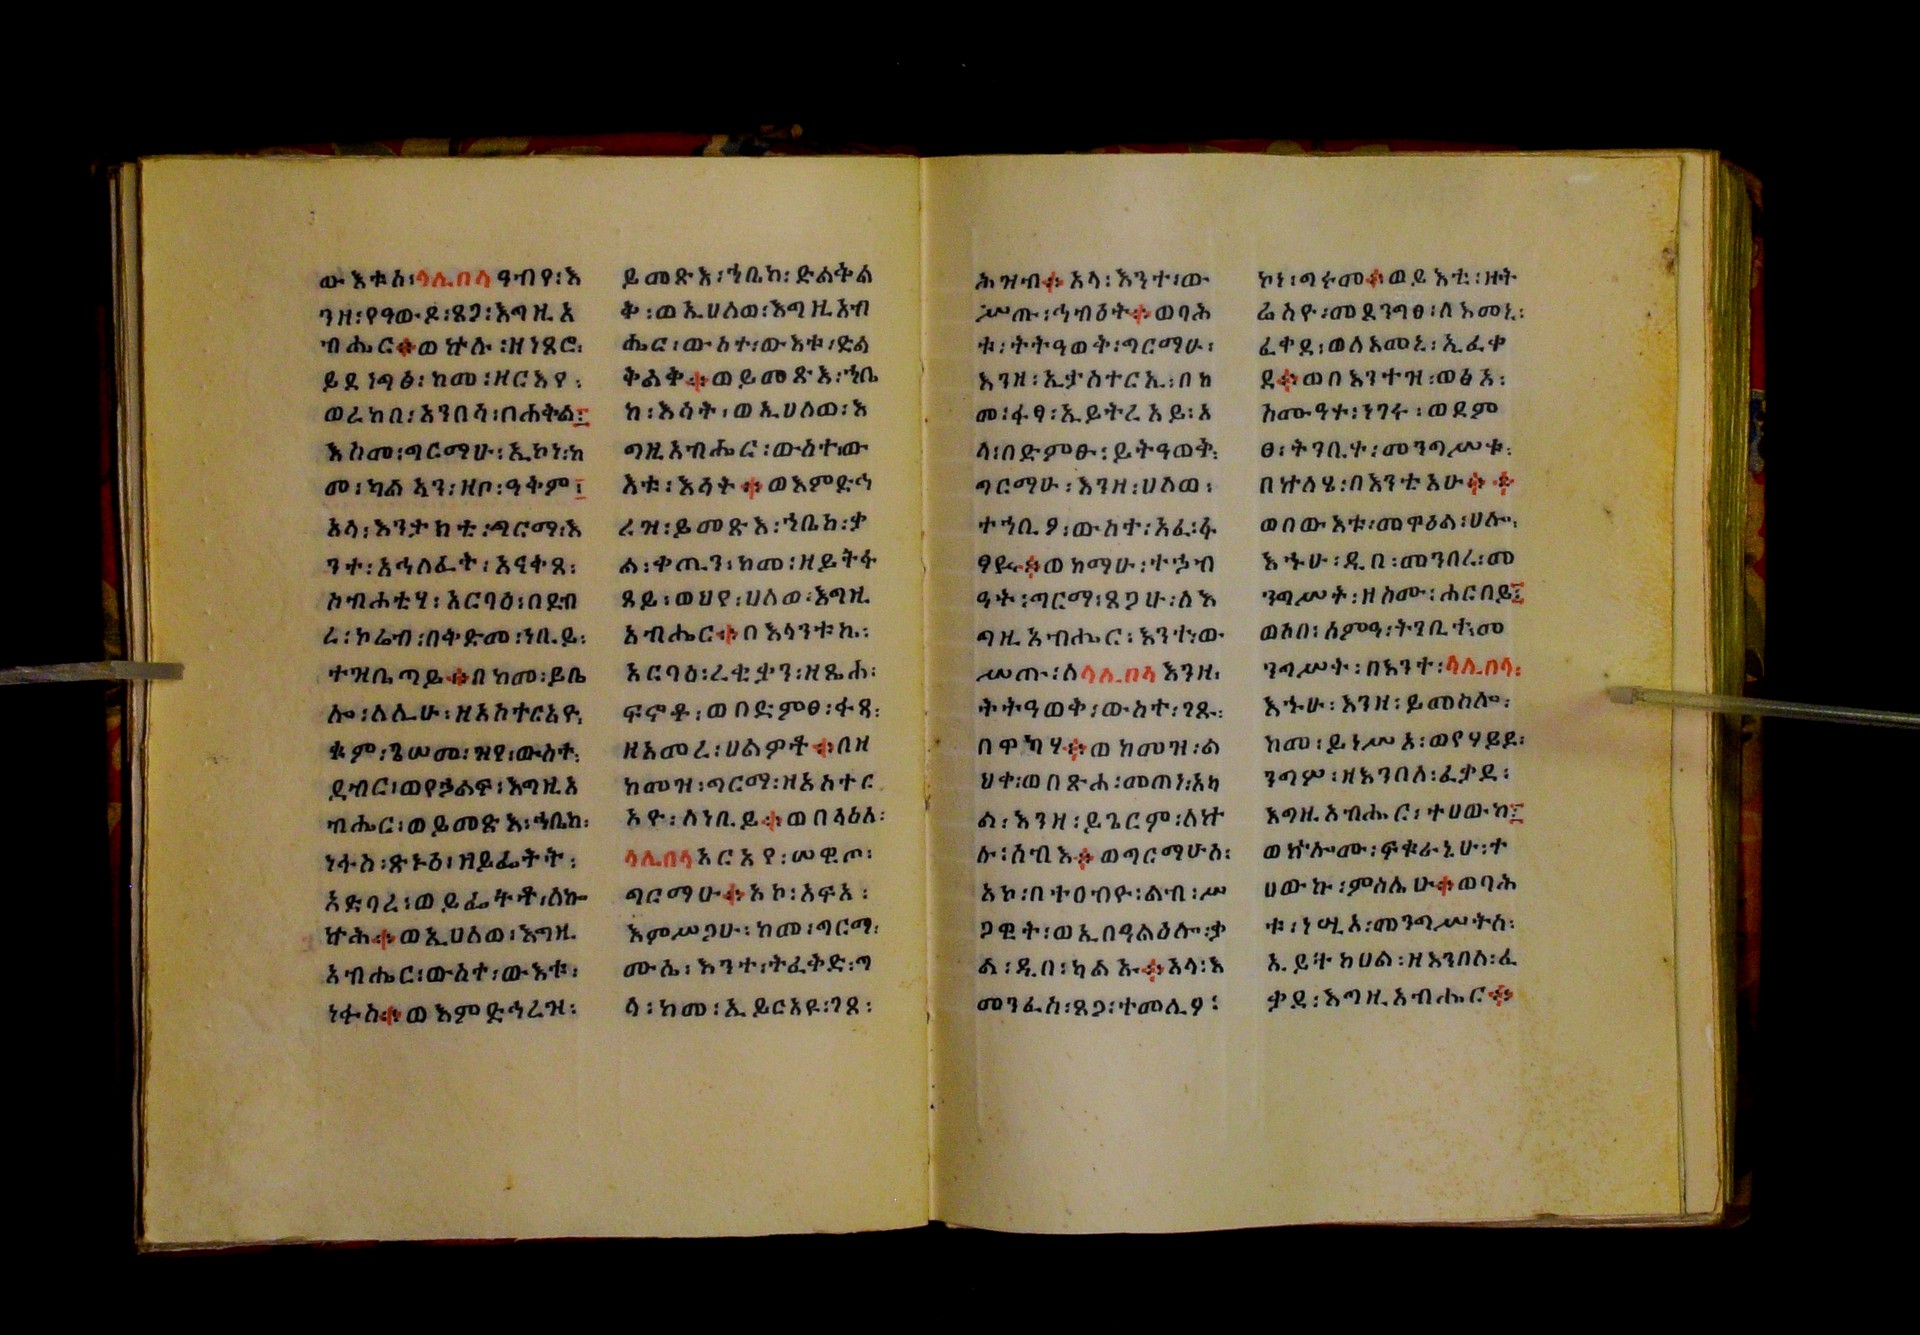 ውእቱሰ፡ላሊበላ፡ዓብየ፡እ
ንዘ፡የዓውዶ፡ጸጋ፡እግዚአ
ብሔር፨ወኵሉ፡ዘነጸሮ፡
ይደነግፅ፡ከመ፡ዘርእየ፡
ወረከበ፡አንበሳ፡በሐቅል፤
እስመ፡ግርማሁ፡ኢኮነ፡ከ
መ፡ካልኣን፡ዘቦ፡ዓቅም፤
አላ፡እንታክቲ፡ግርማ፡እ
ንተ፡አኅለፈት፡አዒቀጸ፡
ስብሐቲሃ፡አርባዕ፡በደብ
ረ፡ኮሬብ፡በቅድመ፡ነቢይ፡
ተዝቤጣይ፨በከመ፡ይቤ
ሎ፡ለሊሁ፡ዘአስተርአዮ፡
ቁም፡ጌሠመ፡ዝየ፡ውስተ፡
ደብር፡ወየኃልፍ፡እግዚአ
ብሔር፡ወይመጽእ፡ኀቤከ፡
ነፋስ፡ጽኑዕ፡ዘይፌትት፡
አድባረ፡ወይፌትት፡ሰኰ
ኵሕ፨ወኢሀለወ፡እግዚ
አብሔር፡ውስተ፡ውእቱ፡
ነፋስ፨ወእምድኅረዝ፡
ይመጽእ፡ኀቤከ፡ድልቅል
ቅ፡ወኢሀለወ፡እግዚአብ
ሔር፡ውስተ፡ውእቱ፡ድል
ቅልቅ፨ወይመጽእ፡ኀቤ
ከ፡እሳት፡ወኢሀለወ፡እ
ግዚአብሔር፡ውስተ፡ው
እቱ፡እሳት፨ወእምድኅ
ረዝ፡ይመጽእ፡ኀቤከ፡ቃ
ል፡ቀጢን፡ከመ፡ዘይትፋ
ጸይ፡ወህየ፡ሀለወ፡እግዚ
አብሔር፨በእላንቱኬ፡
አርባዕ፡ረቂቃን፡ዘጼሐ፡
ፍኖቶ፡ወበድምፀ፡ፋጻ፡
ዘአመረ፡ሀልዎቶ፨በዘ
ከመዝ፡ግርማ፡ዘአስተር
አዮ፡ለነቢይ፨ወበላዕለ፡
ላሊበላ፡አርአየ፡ሠዊጦ፡
ግርማሁ፨አኮ፡አፍአ፡
እምሥጋሁ፡ከመ፡ግርማ፡
ሙሴ፡እንተ፡ትፈቅድ፡ግ
ላ፡ከመ፡ኢይርአዩ፡ገጸ፡
ሕዝብ፨አላ፡እንተ፡ው
ሥጡ፡ኅብዕት፨ወባሕ
ቱ፡ትትዓወቅ፡ግርማሁ፡
እንዘ፡ኢታስተርኢ፡በከ
መ፡ፋፃ፡ኢይትረአይ፡አ
ላ፡በድምፁ፡ይትዓወቅ፡
ግርማሁ፡እንዘ፡ሀለወ፡
ተኀቢዖ፡ውስተ፡አፈ፡ፋ
ፃዪ፨ወከማሁ፡ተኃብ
ዓት፡ግርማ፡ጸጋሁ፡ለእ
ግዚአብሔር፡እንተ፡ው
ሥጡ፡ለላሊበላ፡እንዘ፡
ትትዓወቅ፡ውስተ፡ገጹ፡
በዋካሃ፨ወከመዝ፡ል
ህቀ፡ወበጽሐ፡መጠነ፡አካ
ል፡እንዘ፡ይጌርም፡ለኵ
ሉ፡ሰብእ፨ወግርማሁሰ፡
አኮ፡በተዐብዮ፡ልብ፡ሥ
ጋዊት፡ወኢበዓልዕሎ፡ቃ
ል፡ዲበ፡ካልኡ፨አላ፡እ
መንፈስ፡ጸጋ፡ተመሊዖ፡
ኮነ፡ግሩመ፨ወይእቲ፡ዙት
ሬስዮ፡መደንግፀ፡ለእመኒ፡
ፈቀደ፡ወለእመኒ፡ኢፈቀ
ደ፨ወበእንተዝ፡ወፅአ፡
አሙዓተ፡ነገሩ፡ወደም
ፀ፡ትንቢተ፡መንግሥቱ፡
በኵለሄ፡በእንቲአሁ፨፨
ወበውእቱ፡መዋዕል፡ሀሎ፡
እኁሁ፡ዲበ፡መንበረ፡መ
ንግሥት፡ዘስሙ፡ሐርበይ፤
ወሶበ፡ሰምዓ፡ትንቢተ፡መ
ንግሥት፡በእንተ፡ላሊበላ፡
እኁሁ፡እንዘ፡ይመስሎ፡
ከመ፡ይነሥአ፡ወየሃይደ፡
ንግሥ፡ዘእንበለ፡ፈቃደ፡
እግዚአብሔር፡ተሀውከ፤
ወኵሎሙ፡ፍቁራኒሁ፡ተ
ሀውኩ፡ምስሌሁ፨ወባሕ
ቱ፡ነሢአ፡መንግሥትሰ፡
ኢይትከሀል፡ዘእንበለ፡ፈ
ቃደ፡እግዚአብሔር፨